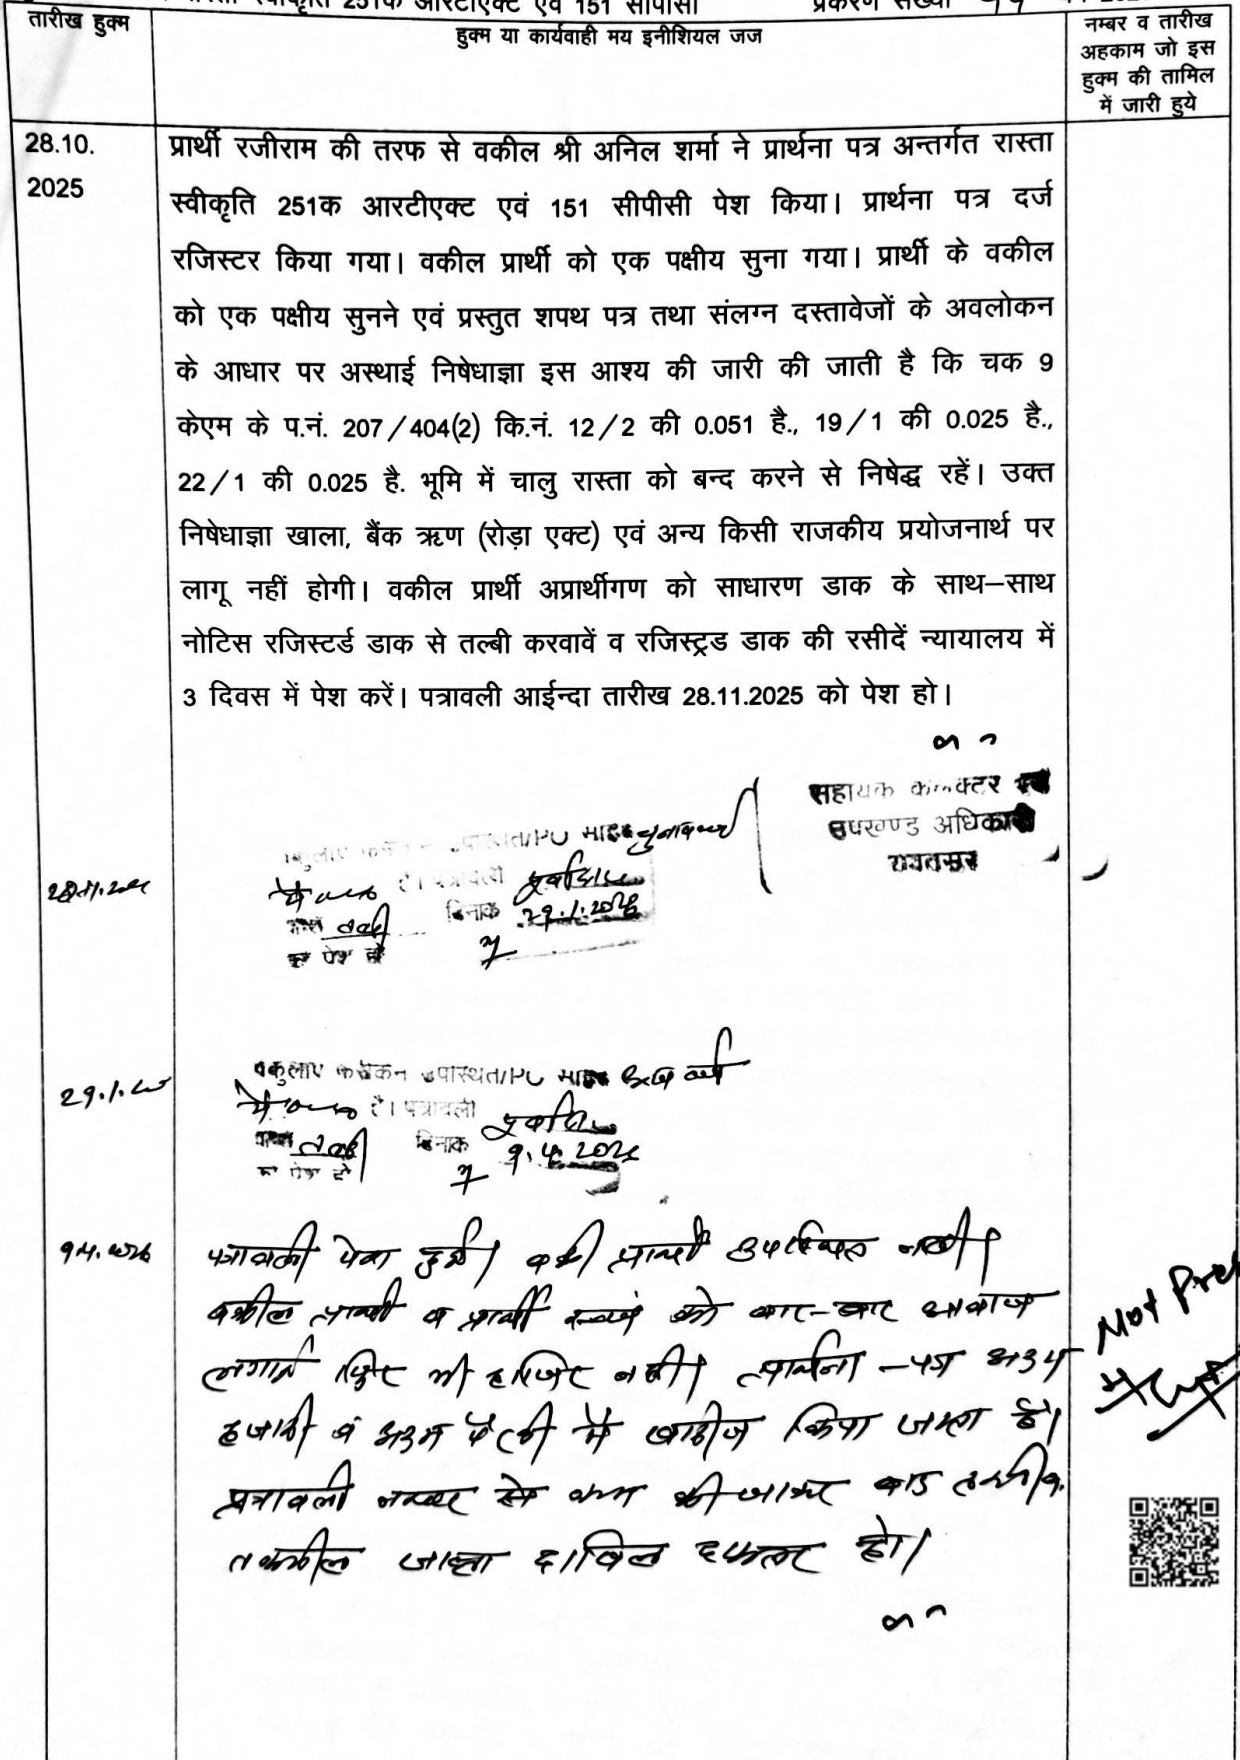 स्वीकृति 251क आरटीएक्ट एवं 151 सीपीसी प्रकरण संख्या
तारीख हुक्म
हुक्म या कार्यवाही मय इनीशियल जज
नम्बर व तारीख
अहकाम जो इस
हुक्म की तामिल
में जारी हुये
28.10.
2025
प्रार्थी रजीराम की तरफ से वकील श्री अनिल शर्मा ने प्रार्थना पत्र अन्तर्गत रास्ता
स्वीकृति 251क आरटीएक्ट एवं 151 सीपीसी पेश किया। प्रार्थना पत्र दर्ज
रजिस्टर किया गया। वकील प्रार्थी को एक पक्षीय सुना गया। प्रार्थी के वकील
को एक पक्षीय सुनने एवं प्रस्तुत शपथ पत्र तथा संलग्न दस्तावेजों के अवलोकन
के आधार पर अस्थाई निषेधाज्ञा इस आश्य की जारी की जाती है कि चक 9
केएम के प.नं. 207/404(2) कि.नं. 12/2 की 0.051 है., 19/1 की 0.025 है.,
22/1 की 0.025 है. भूमि में चालु रास्ता को बन्द करने से निषेद्ध रहें। उक्त
निषेधाज्ञा खाला, बैंक ऋण (रोड़ा एक्ट) एवं अन्य किसी राजकीय प्रयोजनार्थ पर
लागू नहीं होगी। वकील प्रार्थी अप्रार्थीगण को साधारण डाक के साथ–साथ
नोटिस रजिस्टर्ड डाक से तल्बी करवावें व रजिस्ट्रड डाक की रसीदें न्यायालय में
3 दिवस में पेश करें। पत्रावली आईन्दा तारीख 28.11.2025 को पेश हो।
सहायक कलक्टर एवं
उपखण्ड अधिकारी
रावतसर
उपस्थित/PO
है। पत्रावली
दिनाक 29.1.2026
पेश हो
29.1.
उपस्थित/PO
है। पत्रावली
दिनाक 9.4.2026
पेश हो
पत्रावली पेश हुई। प्रार्थी उपस्थित नहीं।
वकील प्रार्थी व प्रार्थी स्वयं को बार-बार आवाज
लगाई फिर भी हाजिर नहीं। प्रार्थना-पत्र अदम
हजारी व अदम पैरवी में खारीज किया जाता है।
पत्रावली नम्बर से कम की जाकर बाद
जाब्ता दाखिल दफ्तर हो।
Not